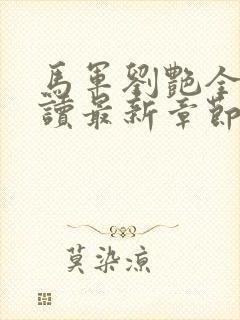 馬軍劉艷全
讀最新章節
莫染凉